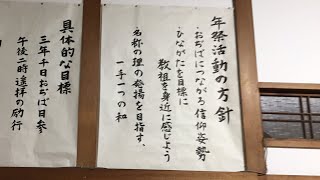 年祭活動の方針
・おぢばにつながる信仰姿勢
・ひながたを目標に
教祖を身近に感じよう
・名称の理の発揚を目指す、
一手一つの和
具体的な目標
三年千日おぢば日参
午後二時遥拝の励行